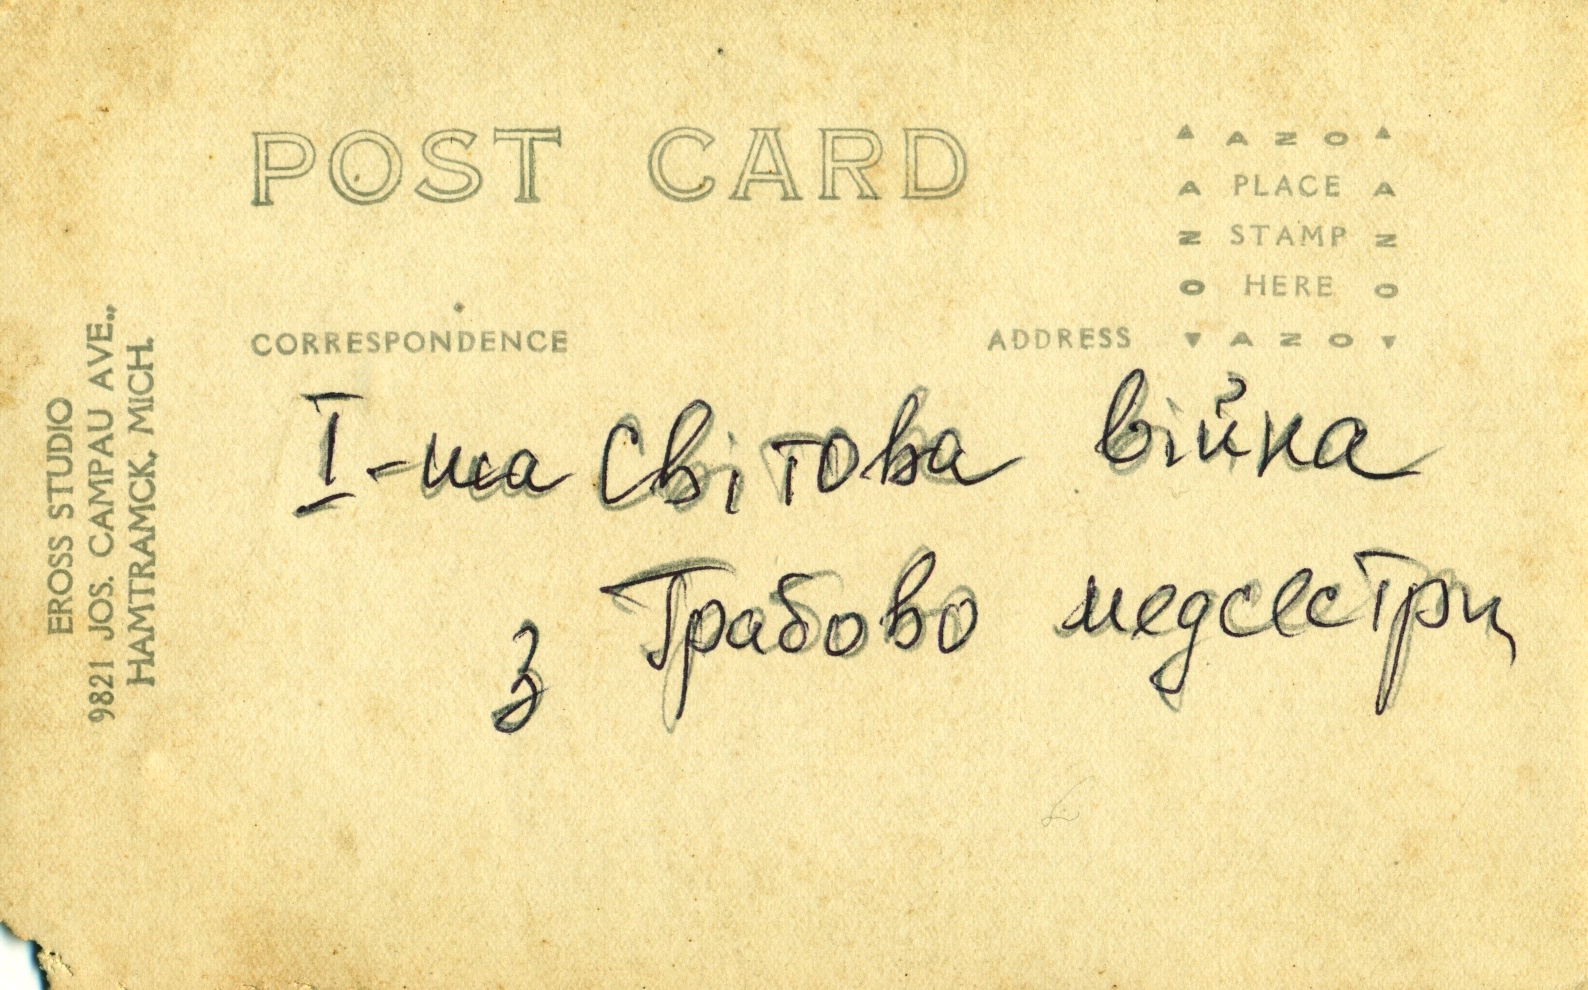 POST CARD
▲ AZO ▲
A PLACE A
Z STAMP Z
O HERE O
▼ AZO ▼
CORRESPONDENCE
ADDRESS
EROSS STUDIO
9821 JOS. CAMPAU AVE.,
HAMTRAMCK, MICH.
I-ша Світова війна
з Грабово медсестри